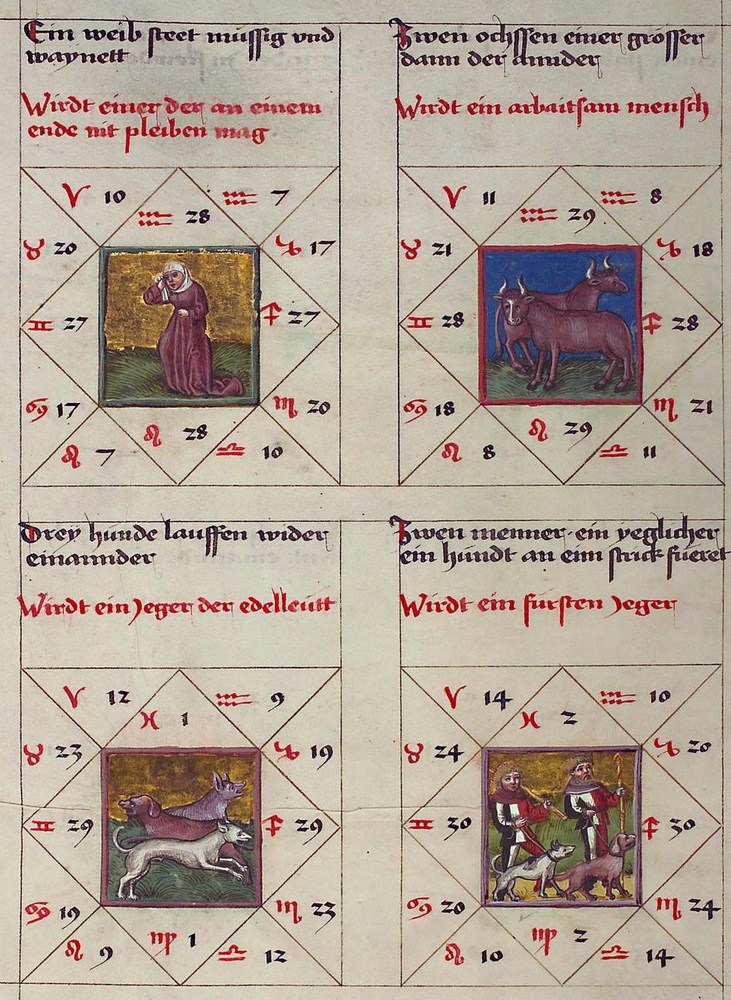 Ein weib steet müssig vnd
waynett
Wirdt einer der an einem
ende nit pleiben mag
♈ 10 ♒ 7
♒ 28
♉ 20 ♑ 17
♊ 27 ♐ 27
♋ 17 ♏ 20
♌ 28
♌ 7 ♎ 10
Zwen ochssen einer grösser
dann der annder
Wirdt ein arbaitsam mensch
♈ 11 ♒ 8
♒ 29
♉ 21 ♑ 18
♊ 28 ♐ 28
♋ 18 ♏ 21
♌ 29
♌ 8 ♎ 11
Drey hünde lauffen wider
einannder
Wirdt ein Jeger der edelleütt
♈ 12 ♒ 9
♓ 1
♉ 23 ♑ 19
♊ 29 ♐ 29
♋ 19 ♏ 23
♍ 1
♌ 9 ♎ 12
Zwen menner · ein yeglicher
ein hündt an eim strick füeret
Wirdt ein fürsten Jeger
♈ 14 ♒ 10
♓ 2
♉ 24 ♑ 20
♊ 30 ♐ 30
♋ 20 ♏ 24
♍ 2
♌ 10 ♎ 14